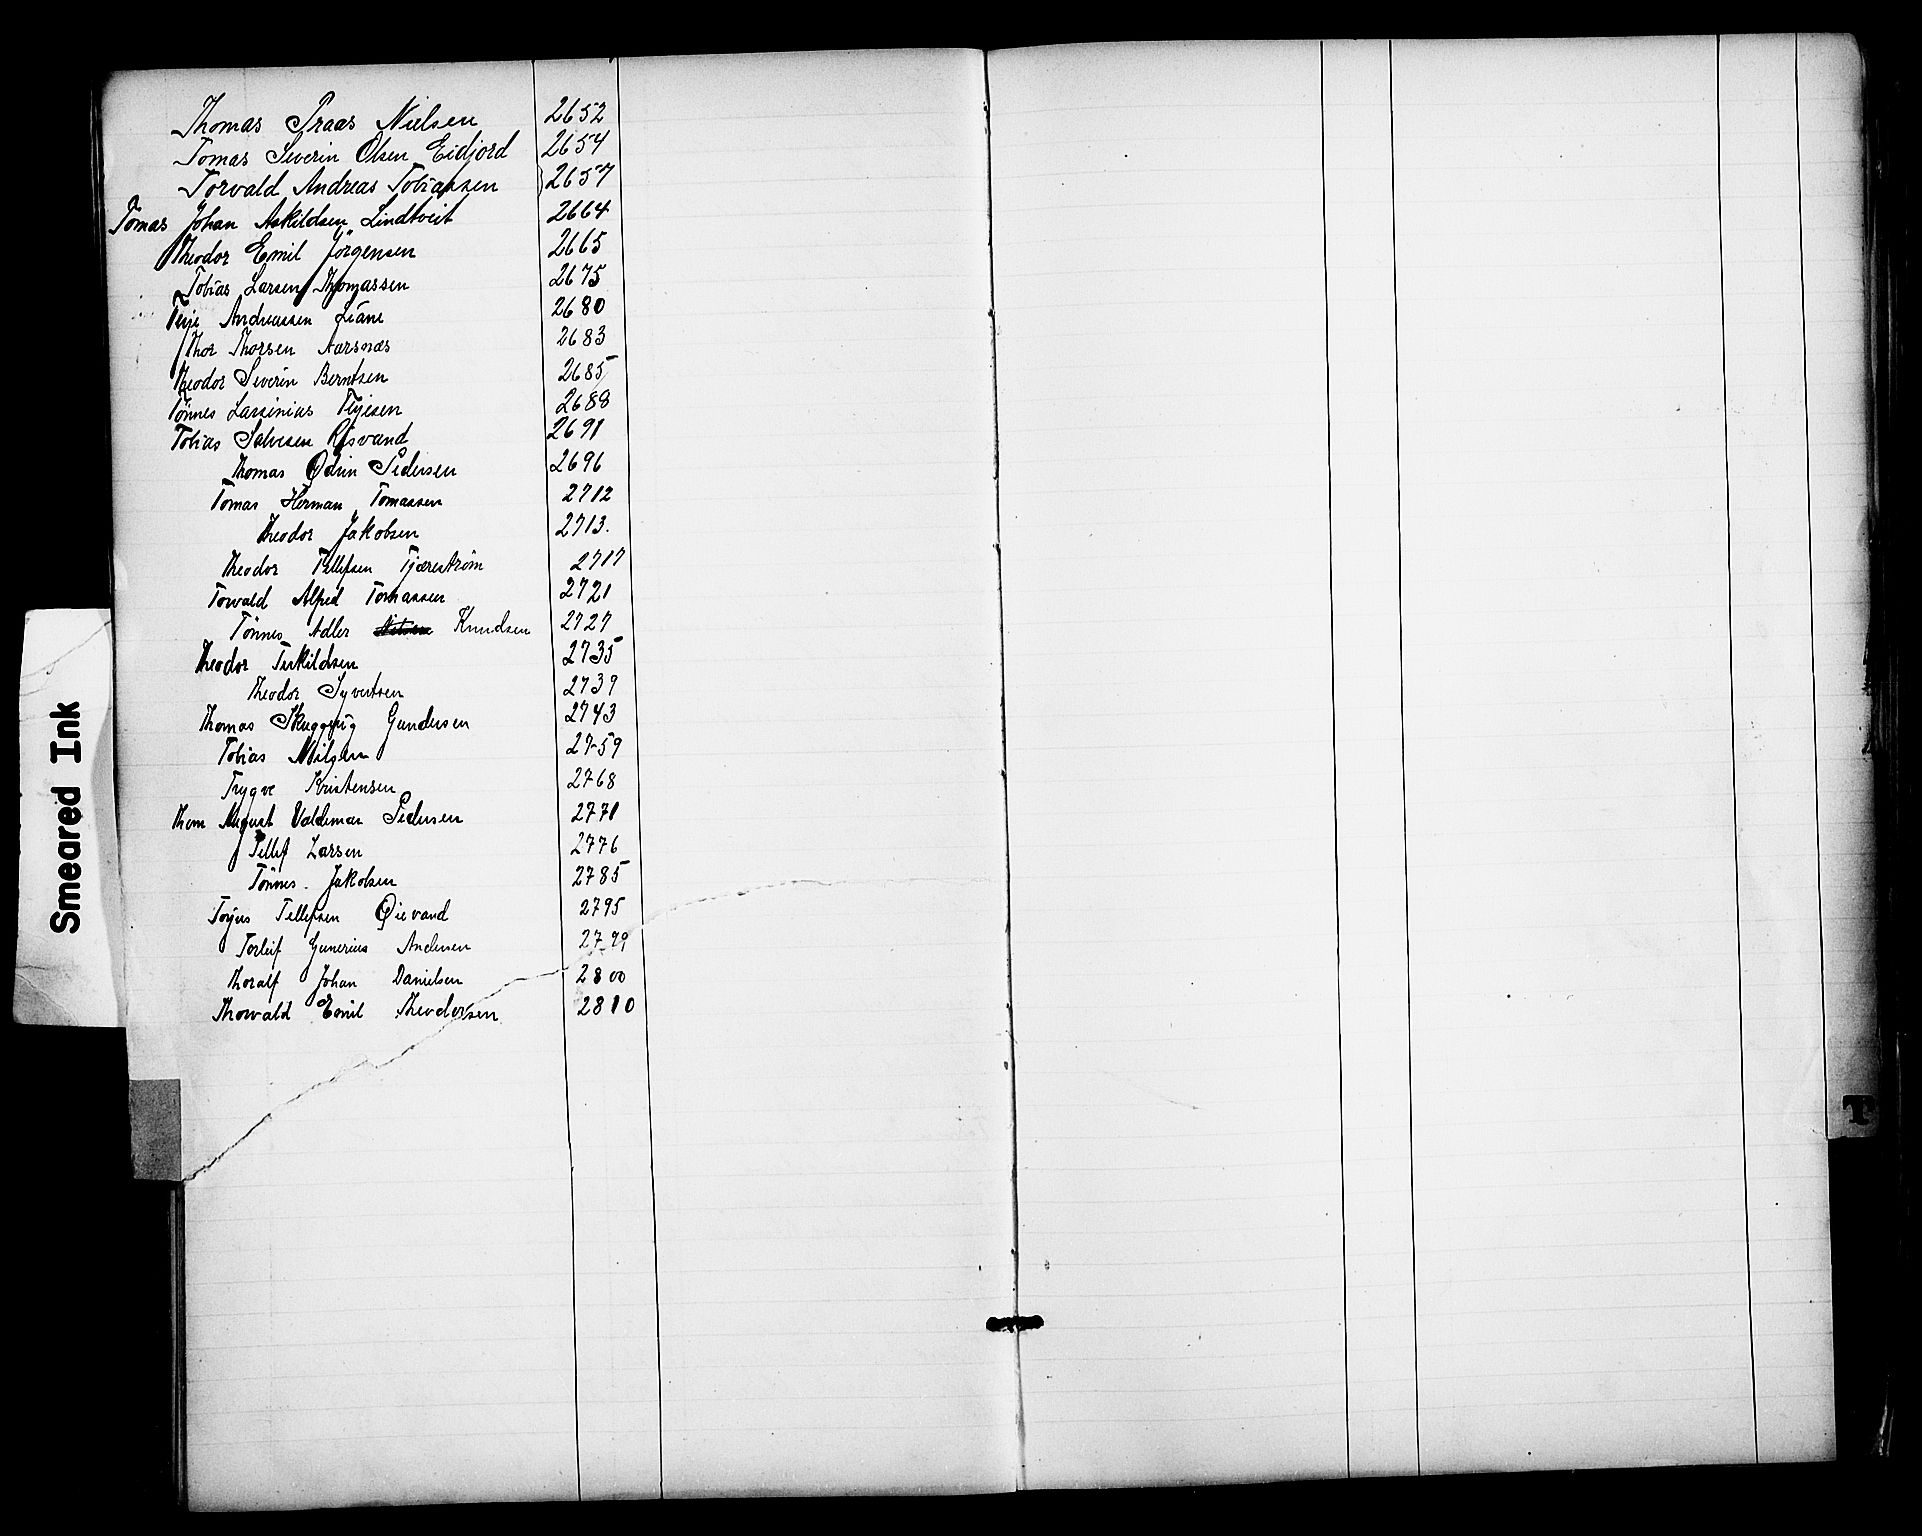 Thomas Praas Nielsen 2652
Tomas Severin Olsen Eidjord 2654
Torvald Andreas Tobiassen 2657
Tomas Johan Askildsen Lindtveit 2664
Theodor Emil Jörgensen 2665
Tobias Larsen Thomassen 2675
Terje Andreassen Liane 2680
Thor Thorsen Aarsnæs 2683
Theodor Severin Berntsen 2685
Tønnes Larsinius Terjesen 2688
Tobias Salvesen Risvand 2691
Thomas Odin Pedersen 2696
Tomas Herman Tomassen 2712
Theodor Jakobsen 2713.
Theodor Tellefsen Tjærestrøm 2717
Torvald Alfred Tomassen 2721
Tönnes Adler Knudsen 2727
Theodor Terkildsen 2735
Theodor Syvertsen 2739
Thomas Gundersen 2743
Tobias Nilsen 2759
Trygve Kristensen 2768
Thom August Valdemar Pedersen 2771
Tellef Larsen 2776
Tönnes. Jakobsen 2785
Torjus Tellefsen Øievand 2795
Torleif Gunerius Andersen 2799
Thoralf Johan Danielsen 2800
Thorvald Emil Theodorsen 2810
Smeared Ink
T